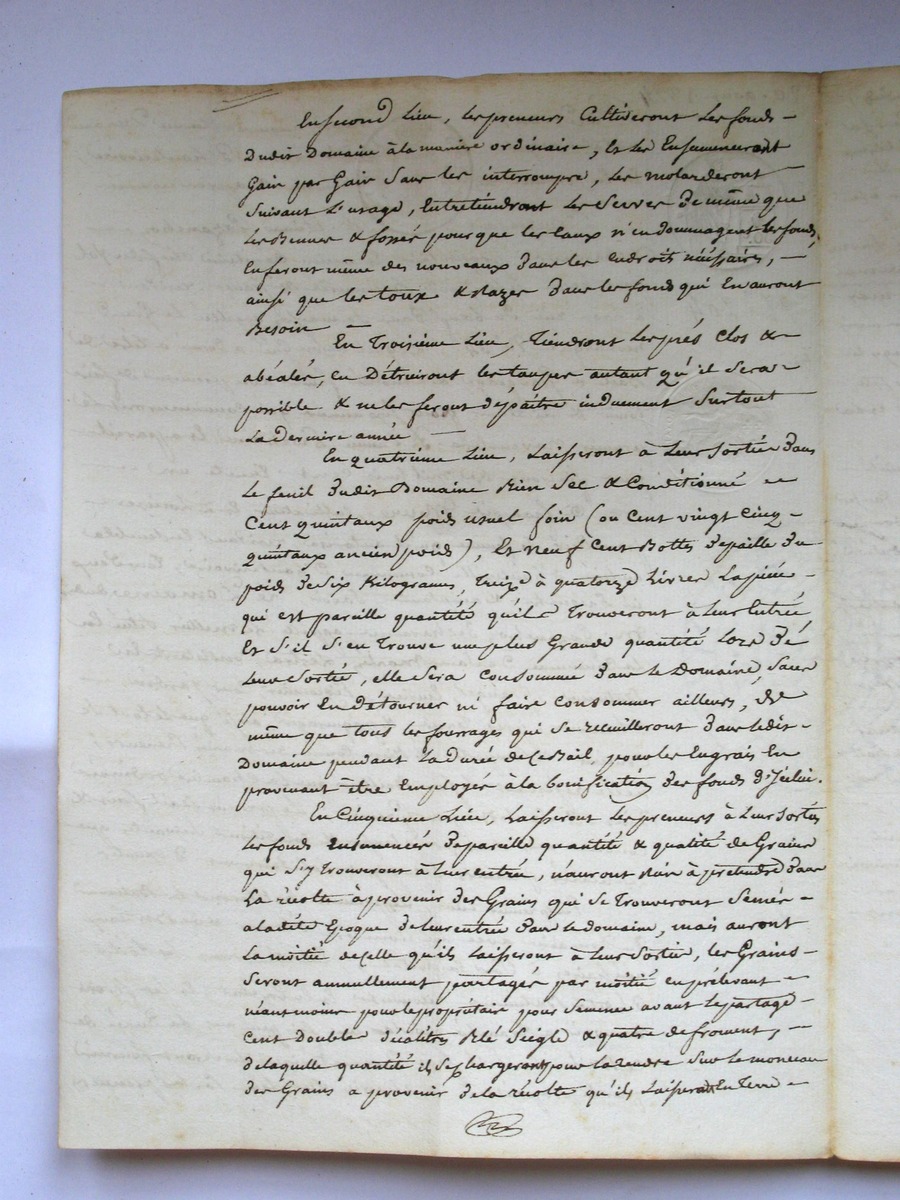 En second Lieu, les preneurs Cultiveront les fonds
dudit Domaine à la manière ordinaire, Et les Ensemenceront
Gain par Gain Sans les interrompre, les molarderont
Suivant L'usage, Entretiendront les Serves de même que
les Bennes & fossés pour que les Eaux n'endommagent les fonds,
En feront même des nouveaux dans les Endroits nécéssaires,
ainsi que les toux & Razes dans les fonds qui En auront
Besoin
En Troisième Lieu, Tiendront les prés Clos &
abéalés, en Détruiront les taupes autant qu'il Sera
possible & ne les feront dépaître induement Surtout
La dernière année
En quatrième Lieu, Laisseront à Leur Sortie dans
Le fenil dudit Domaine Bien Sec & Conditionné
Cent quintaux poids usuel foin (ou Cent vingt Cinq
quintaux ancien poids), Et Neuf Cent Bottes de paille du
poids de Six Kilogrames, treize à quatorze Livres La pièce
qui est pareille quantité qu'ils Trouveront à Leur Entrée
Et S'il S'en Trouve une plus Grande quantité Lors de
Leur Sortie, elle Sera Consommée dans le Domaine, Sans
pouvoir En détourner ni faire Consommer ailleurs, de
même que tous les fourrages qui Se recuilleront dans ledit
Domaine pendant La durée de Ce Bail, pour les Engrais En
provenant être Employés à la bonification des fonds d'Jcelui.
En Cinquieme Lieu, Laisseront les preneurs à Leur Sortie
Les fonds ensemencés de pareille quantité & qualité de Grains
qui S'y Trouveront à Leur entrée, n'auront Rien à prétendre dans
La récolte à provenir des Grains qui Se Trouveront Semés
a ladite Epoque de leur entrée dans le domaine, mais auront
La moitié de Celle qu'ils Laisseront à Leur Sortie, les Grains
Seront annuellement partagés par moitié en prélevant
néantmoins pour le propriétaire pour Semence avant le partage
Cent Doubles décalitres Blé Seigle & quatre de froment,
de laquelle quantité ils Se chargeront pour la rendre Sur le monceau
des Grains a provenir de la récolte qu'ils Laisseront En Terre